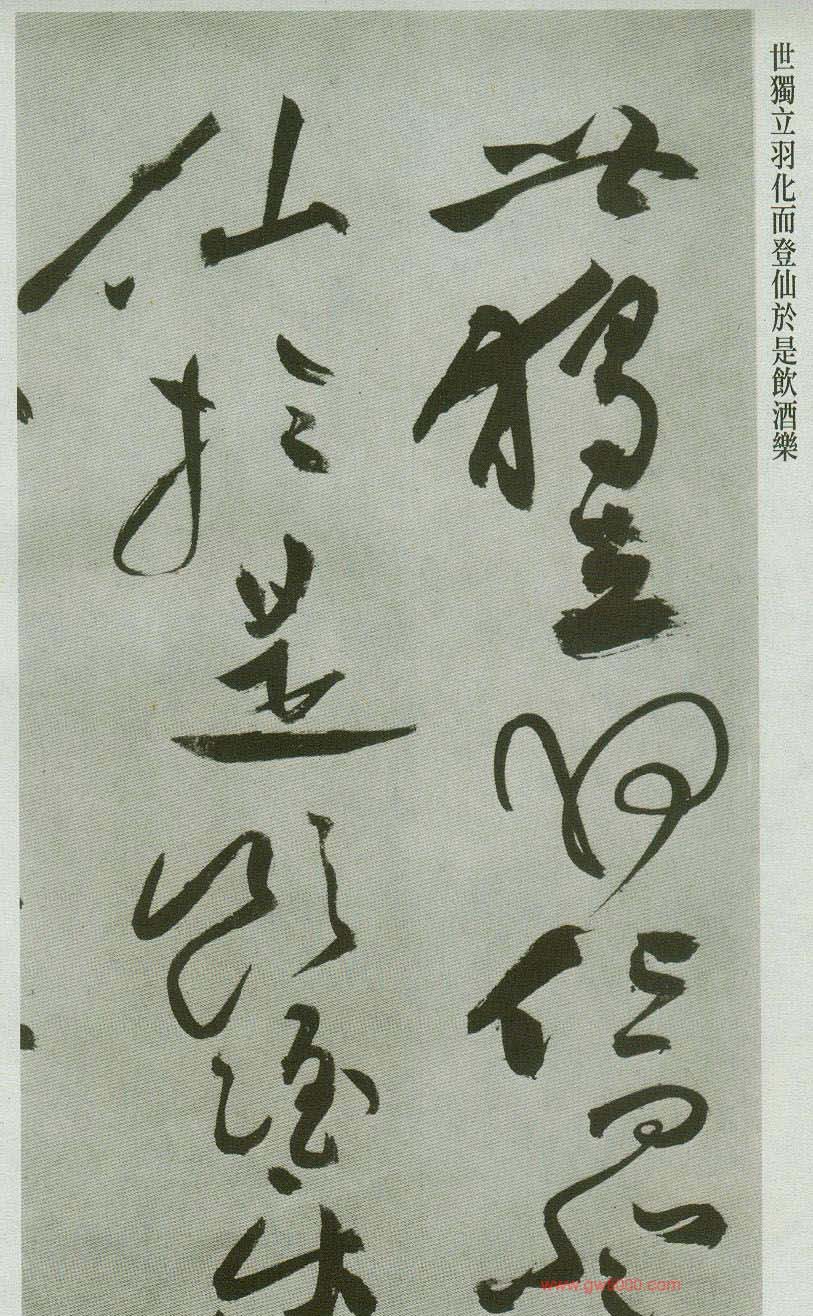 世獨立羽化而登仙於是飲酒樂
世獨立羽化而登
仙於是飲酒樂
www.gw8000.com